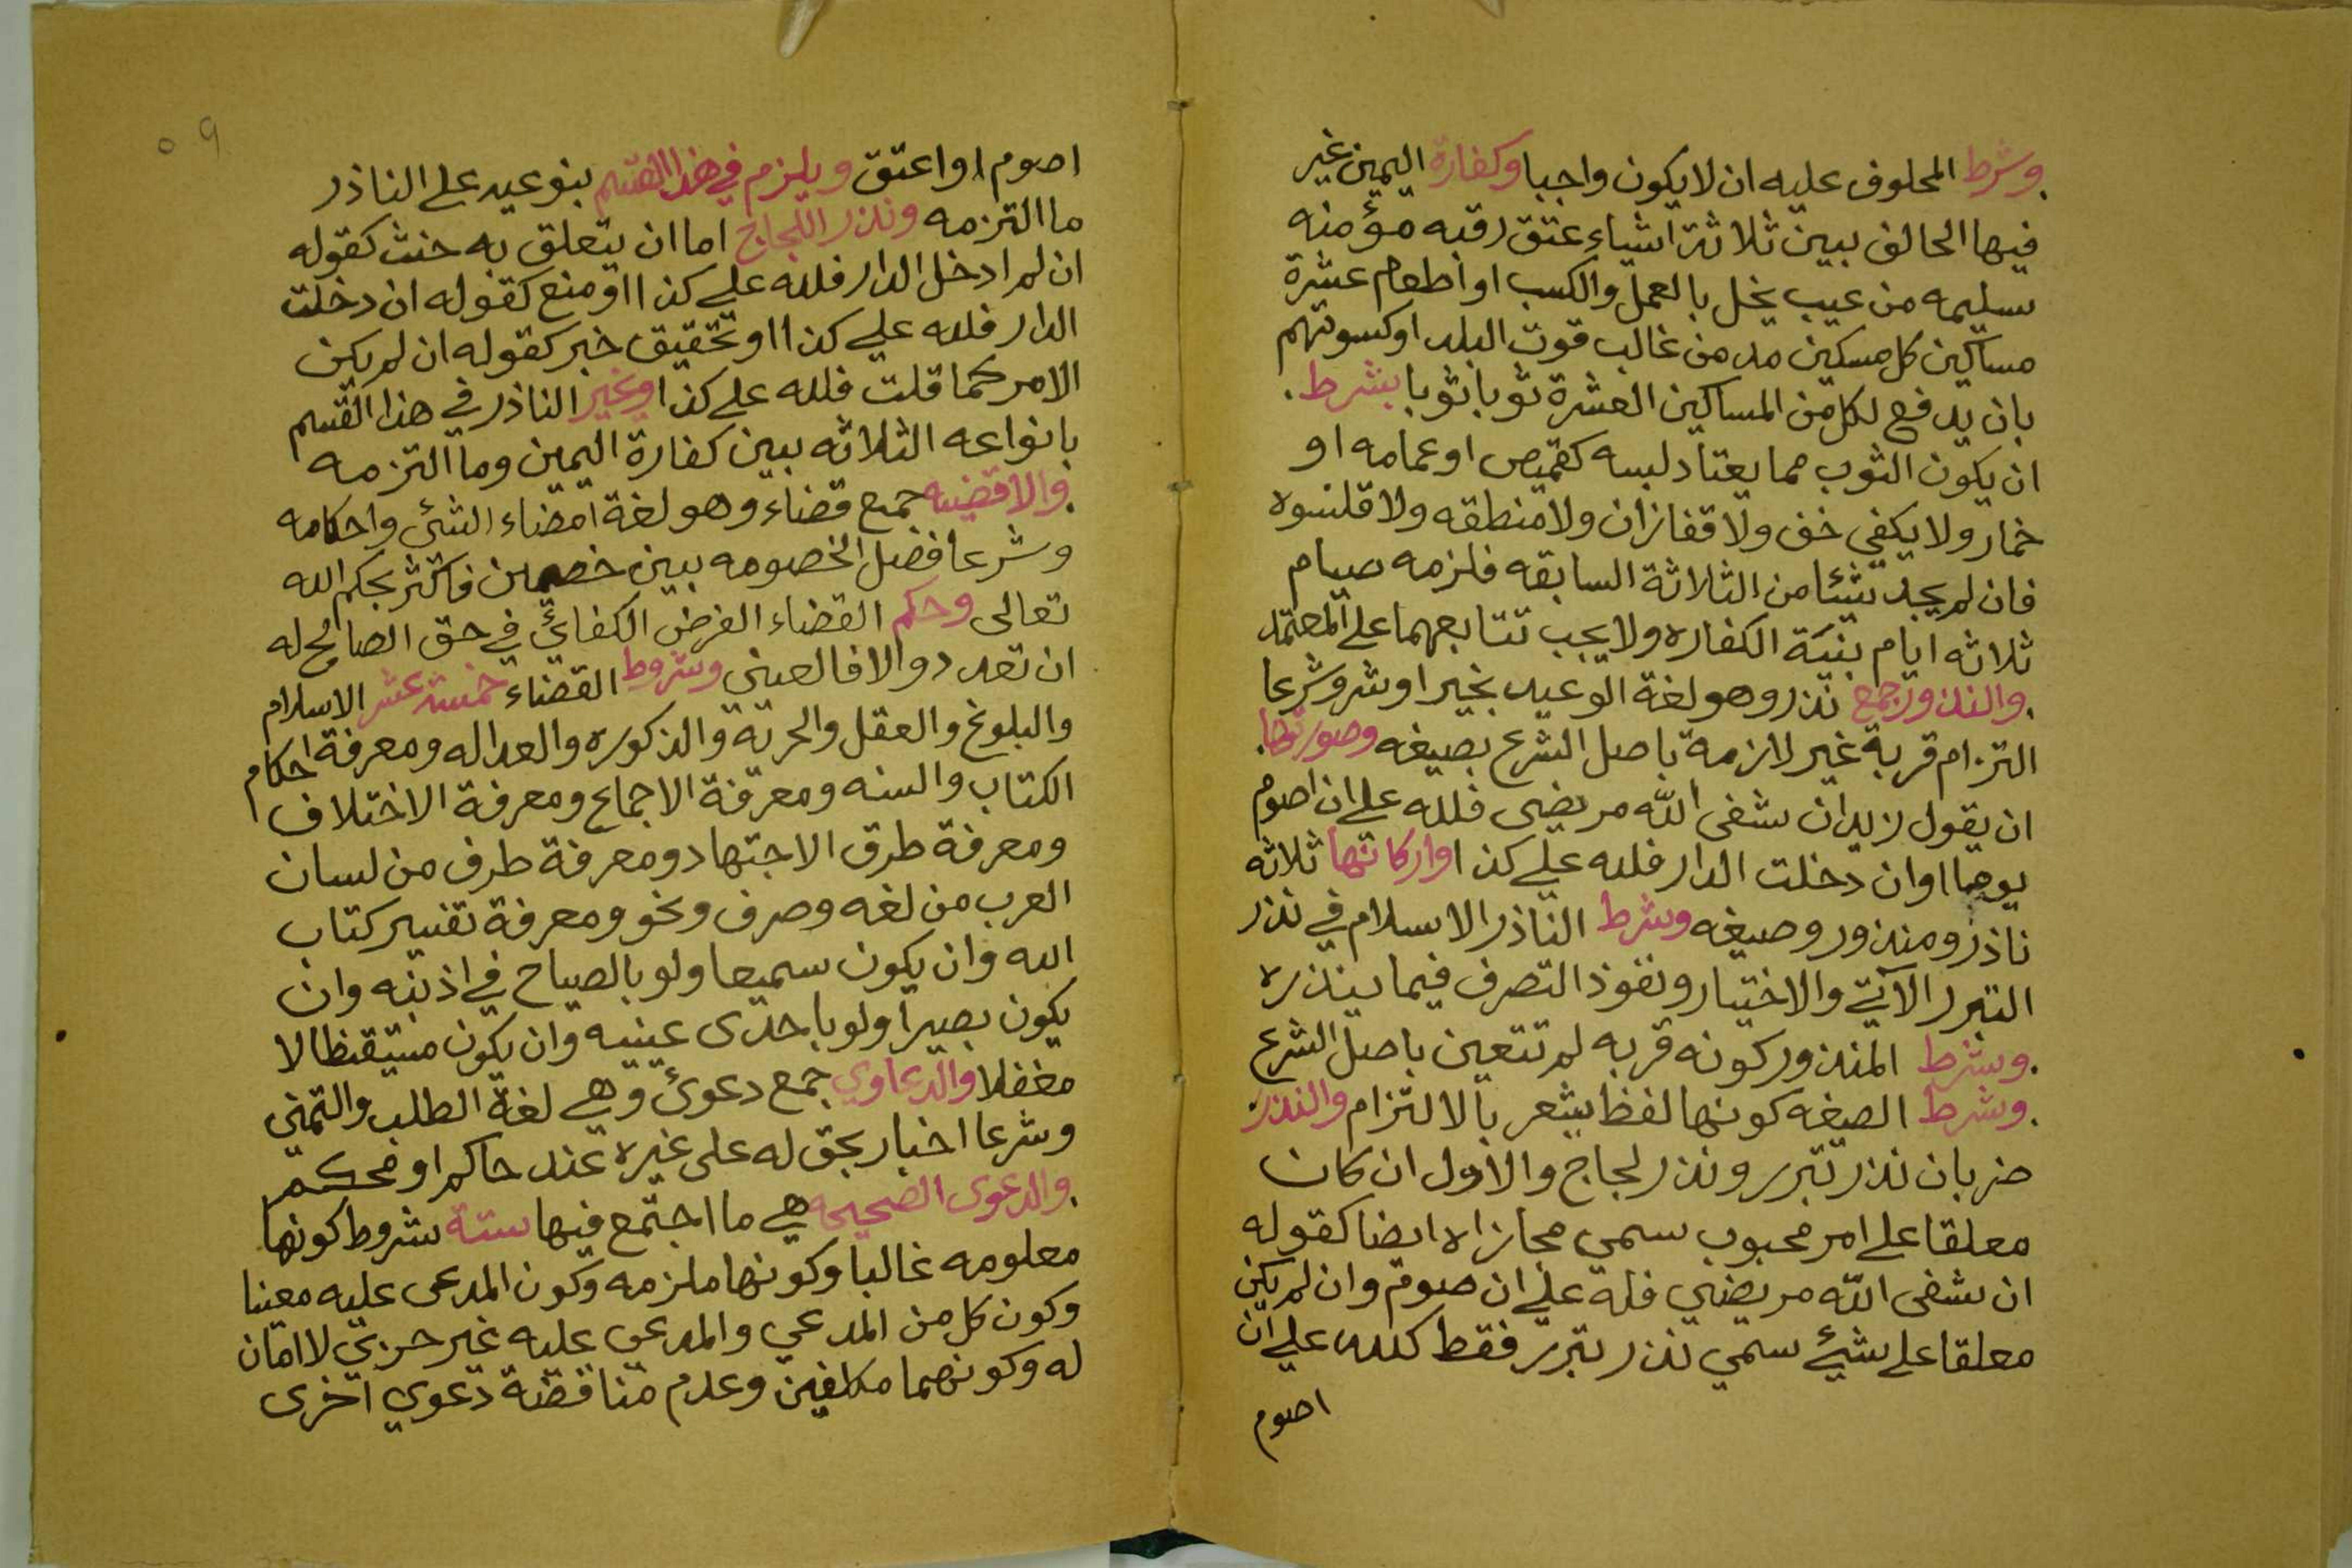 وشرط المحلوف عليه ان لا يكون واجبا وكفارة اليمين غير
فيها الحالف بين ثلاثة اشياء عتق رقبه مؤمنه
سليمه من عيب يخل بالعمل والكسب او اطعام عشرة
مساكين كل مسكين مد من غالب قوت البلد او كسوتهم
بان يدفع لكل من المساكين العشرة ثوبا ثوبا بشرط
ان يكون الثوب مما يعتاد لبسه كقميص او عمامه او
خمار ولا يكفي خف ولا قفازان ولا منطقه ولا قلنسوه
فان لم يجد شيئا من الثلاثة السابقه فلزمه صيام
ثلاثه ايام بنية الكفاره ولا يجب تتابعهما على المعتمد
والنذور جمع نذر وهو لغة الوعيد بخير او شر وشرعا
التزام قربة غير لازمة باصل الشرع بصيغه وصورتها
ان يقول زيد ان شفى الله مريضى فلله علي ان اصوم
يوما او ان دخلت الدار فلله علي كذا واركانها ثلاثه
ناذر ومنذور وصيغه وشرط الناذر الاسلام في نذر
التبرر الآتي والاختيار ونفوذ التصرف فيما ينذره
وشرط المنذور كونه قربه لم تتعين باصل الشرع
وشرط الصيغه كونها لفظ يشعر بالالتزام والنذر
ضربان نذر تبرر ونذر لجاج والاول ان كان
معلقا على امر محبوب سمي مجازاه ايضا كقوله
ان شفى الله مريضي فله علي ان صوم وان لم يكن
معلقا على شيئ سمي نذر تبرر فقط كلله علي ان
اصوم
٥٩
اصوم او اعتق ويلزم في هذا القسم بنوعيه على الناذر
ما التزمه ونذر اللجاج اما ان يتعلق به حنث كقوله
ان لم ادخل الدار فلله علي كذا او منع كقوله ان دخلت
الدار فلله علي كذا او تحقيق خبر كقوله ان لم يكن
الامر كما قلت فلله علي كذا وغير الناذر في هذا القسم
بانواعه الثلاثه بين كفارة اليمين وما التزمه
والاقضيه جمع قضاء وهو لغة امضاء الشئ واحكامه
وشرعا فضل الخصومه بين خصمين فاكثر بحكم الله
تعالى وحكم القضاء الفرض الكفائي في حق الصالح له
ان تعدد والا فالعيني وشروط القضاء خمسة عشر الاسلام
والبلوغ والعقل والحرية والذكوره والعداله ومعرفة احكام
الكتاب والسنه ومعرفة الاجماع ومعرفة الاختلاف
ومعرفة طرق الاجتهاد ومعرفة طرف من لسان
العرب من لغه وصرف ونحو ومعرفة تفسير كتاب
الله وان يكون سميعا ولو بالصياح في اذنيه وان
يكون بصيرا ولو باحدى عينيه وان يكون متيقظا لا
مغفلا والدعاوي جمع دعوئ وهي لغة الطلب والتمني
وشرعا اخبار بحق له على غيره عند حاكم او محكم
والدعوى الصحيحه هي ما اجتمع فيها ستة شروط كونها
معلومه غالبا وكونها ملزمه وكون المدعى عليه معينا
وكون كل من المدعي والمدعى عليه غير حربي لا امان
له وكونهما مكلفين وعدم مناقضة دعوي اخرى